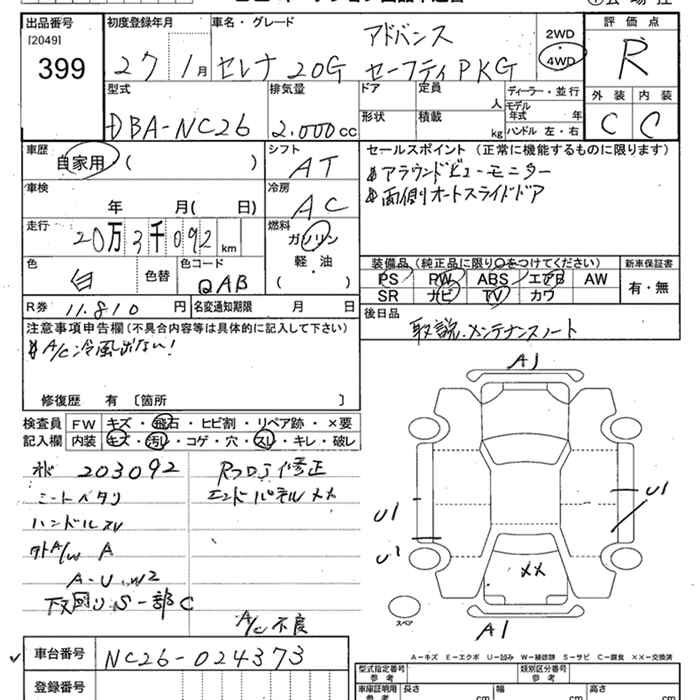 出品番号
[2049]
399
初度登録年月
27 1月
車名・グレード
アドバンス
セレナ 20G セーフティPKG
2WD
4WD
評価点
R
外装 内装
C C
型式
DBA-NC26
排気量
2.000cc
ドア
形状
定員
人
積載
kg
ディーラー・並行
モデル
年式 年
ハンドル 左・右
車歴
自家用 ( )
シフト
AT
セールスポイント (正常に機能するものに限ります)
アラウンドビューモニター
両側オートスライドドア
車検
年 月( 日)
冷房
AC
走行
20万3千092km
燃料
ガソリン
軽・油
( )
色
白
色替
色コード
QAB
装備品 (純正品に限り○をつけてください)
PS PW ABS エアB AW
SR ナビ TV カワ
新車保証書
有・無
R券 11.810円
名変通知期限 月 日
後日品
取説.メンテナンスノート
注意事項申告欄 (不具合内容等は具体的に記入して下さい)
A/C冷風出ない!
修復歴 有 〔箇所 〕
検査員
記入欄
FW キズ・飛石・ヒビ割・リペア跡・×要
内装 キズ・汚れ・コゲ・穴・スレ・キレ・破レ
203092
シートヘタリ
ハンドルスレ
外A/W A
A-U.W2
下回りS一部C
RフロJ修正
エンドパネルXX
A/C不良
A1
U1
U1
U1
XX
A1
スペア
車台番号
NC26-024373
登録番号
A-キズ E-エクボ U-凹み W-補修跡 S-サビ C-腐食 ××-交換済
型式指定番号
参考
類別区分番号
参考
車庫証明用
参考
長さ cm
幅 cm
高さ cm